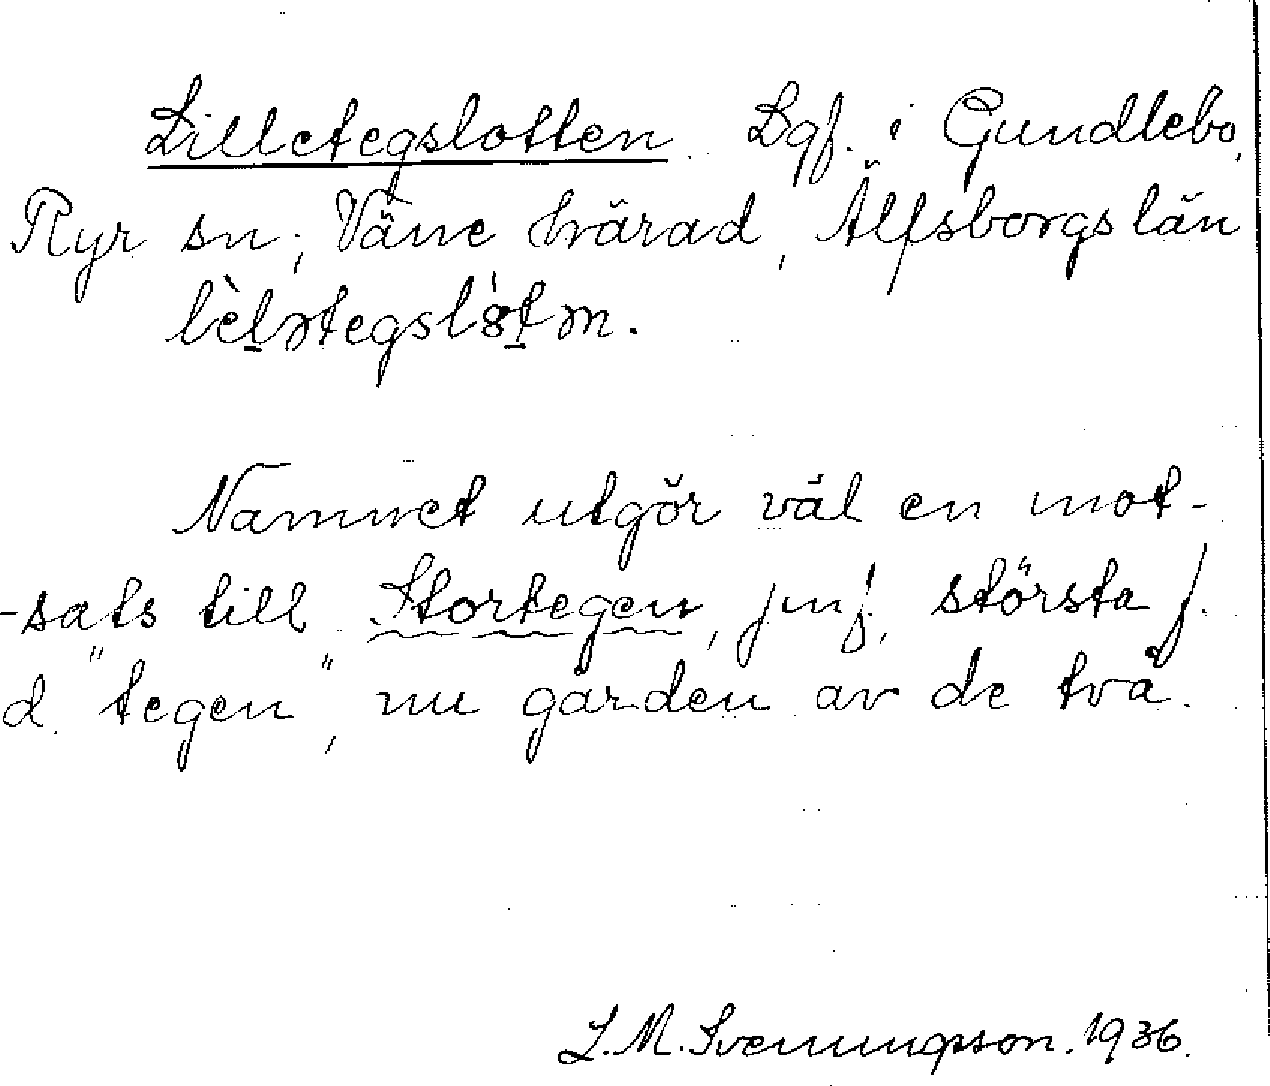 Lilletegslotten. Lgf. i Gundlebo,
Ryr sn, Väne härad, Älfsborgs län
Namnet utgör väl en mot-
-sats till Stortegen, jmf. största j.
d. "tegen", nu gården av de två.
L. M. Svenungsson. 1936.